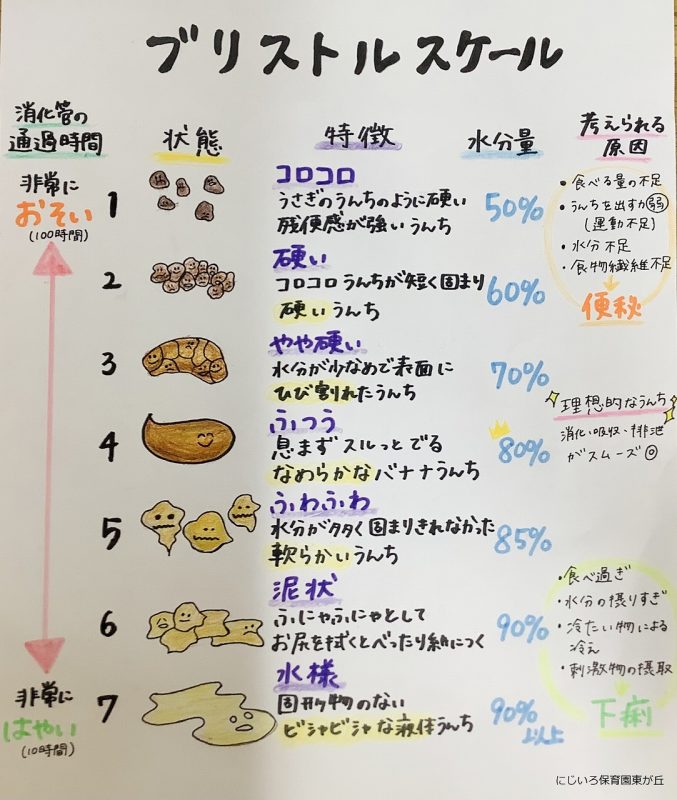 ブリストルスケール
消化管の
通過時間
状態
特徴
水分量
考えられる
原因
非常に
おそい
(100時間)
1
コロコロ
うさぎのうんちのように硬い
残便感が強いうんち
50%
・食べる量の不足
・うんちを出す力弱
(運動不足)
・水分不足
・食物繊維不足
便秘
2
硬い
コロコロうんちが短く固まり
硬いうんち
60%
3
やや硬い
水分が少なめで表面に
ひび割れたうんち
70%
4
ふつう
息まずスルっとでる
なめらかなバナナうんち
80%
理想的なうんち
消化・吸収・排泄
がスムーズ◎
5
ふわふわ
水分が多く固まりきれなかった
軟らかいうんち
85%
6
泥状
ふにゃふにゃとして
お尻を拭くとべったり紙につく
90%
・食べ過ぎ
・水分の摂りすぎ
・冷たい物による
冷え
・刺激物の摂取
下痢
非常に
はやい
(10時間)
7
水様
固形物のない
ビシャビシャな液体うんち
90%
以上
にじいろ保育園東が丘